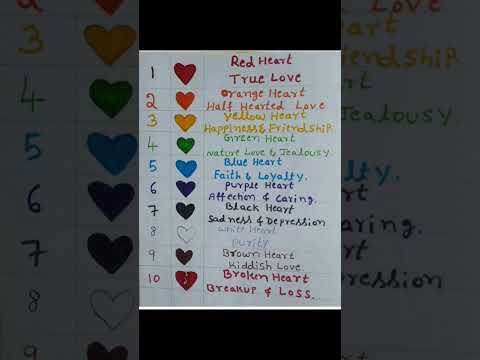 1 Red Heart
True Love
2 orange Heart
Half Hearted Love
3 Yellow Heart
Happiness & Friendship
4 Green Heart
Nature Love & Jealousy.
5 Blue Heart
Faith & Loyalty.
6 Purple Heart
Affection & Caring.
7 Black Heart
Sadness & Depression
8 White Heart
Purity
9 Brown Heart
Kiddish Love
10 Broken Heart
Breakup & Loss.
3
4
5
6
7
8
9
art
riendship
art
Jealousy.
lty.
aring.
pression